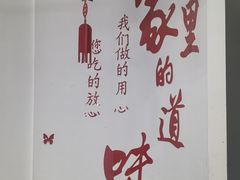 家里的道味
我们做的用心
您吃的放心